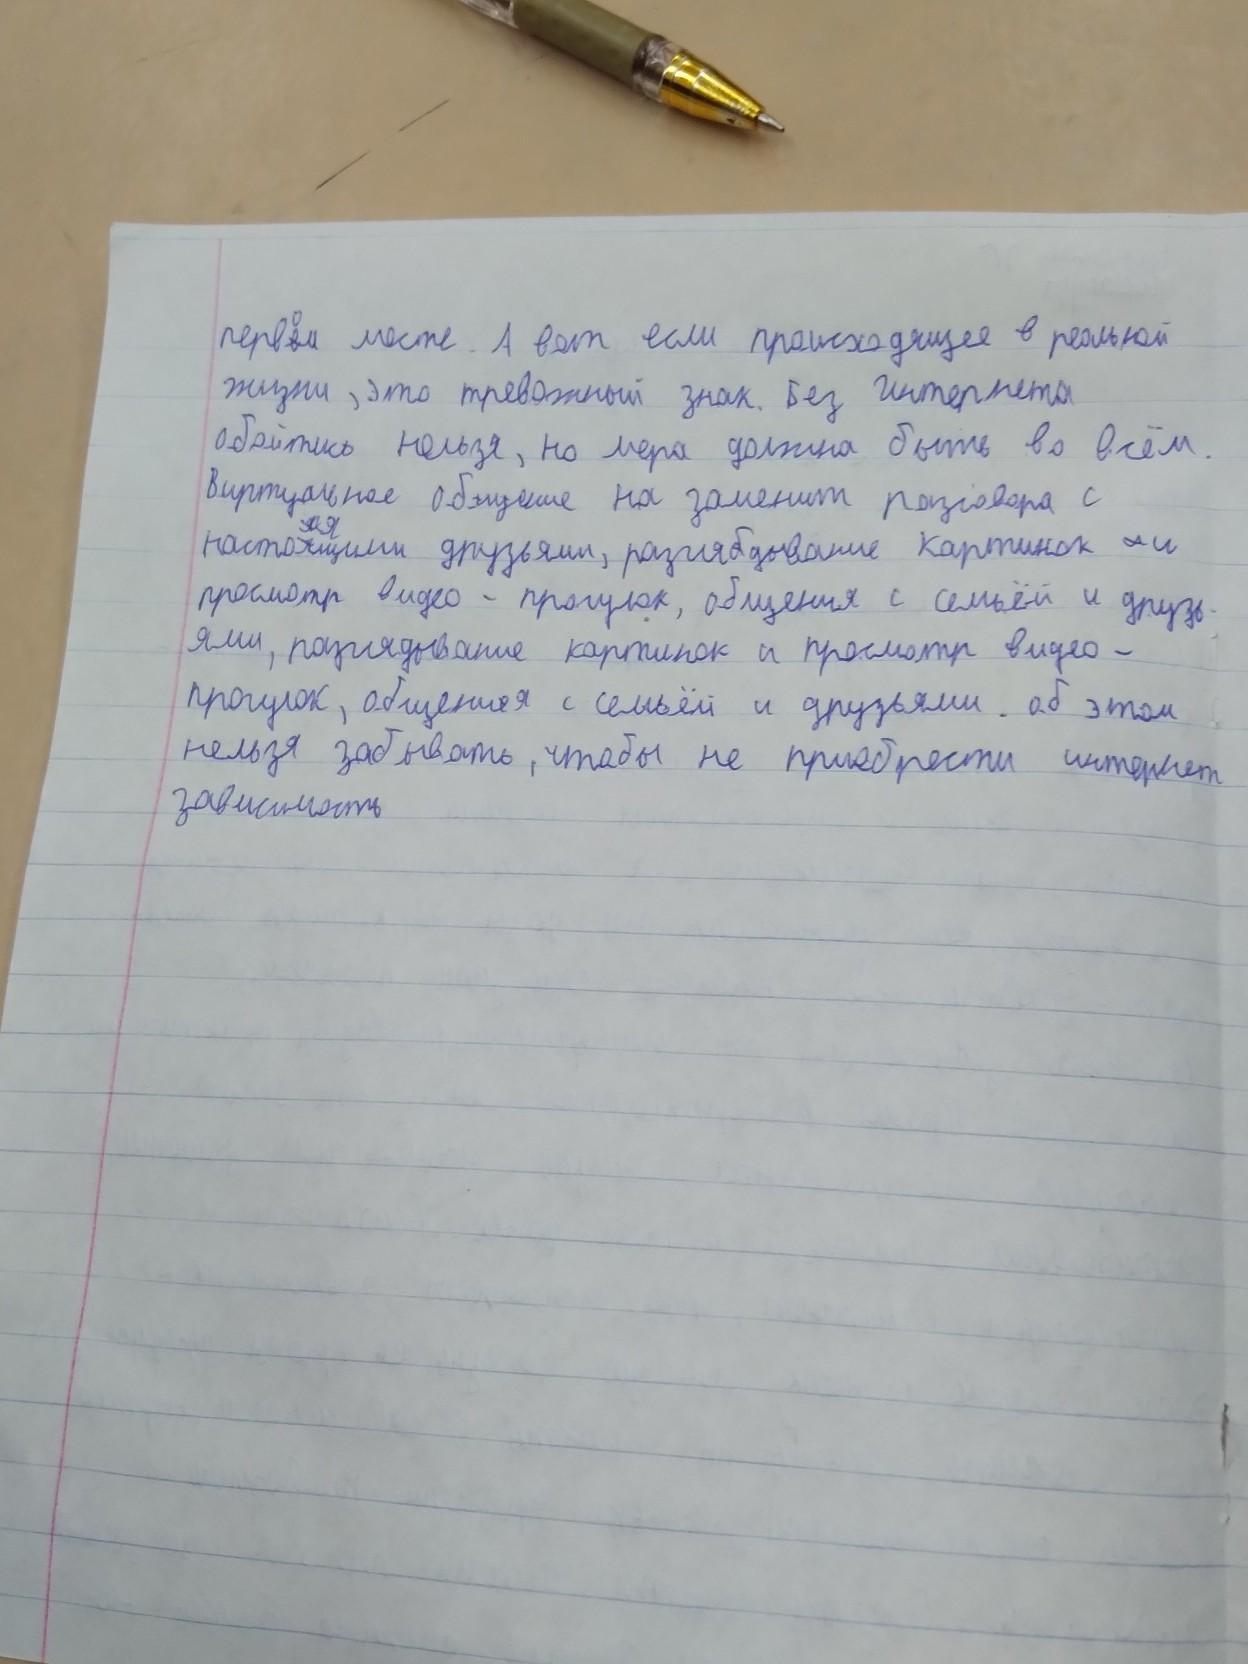 первом месте. А вот если происходящее в реальной
жизни, это тревожный знак. Без Интернета
обойтись нельзя, но мера должна быть во всём.
Виртуальное общение на заменит разговора с
настоящими друзьями, разглябдывание картинок и
просмотр видео - прогулок, общения с семьёй и друзь-
ями, разглядывание картинок и просмотр видео -
прогулок, общения с семьёй и друзьями. об этом
нельзя забывать, чтобы не приобрести интернет
зависимость